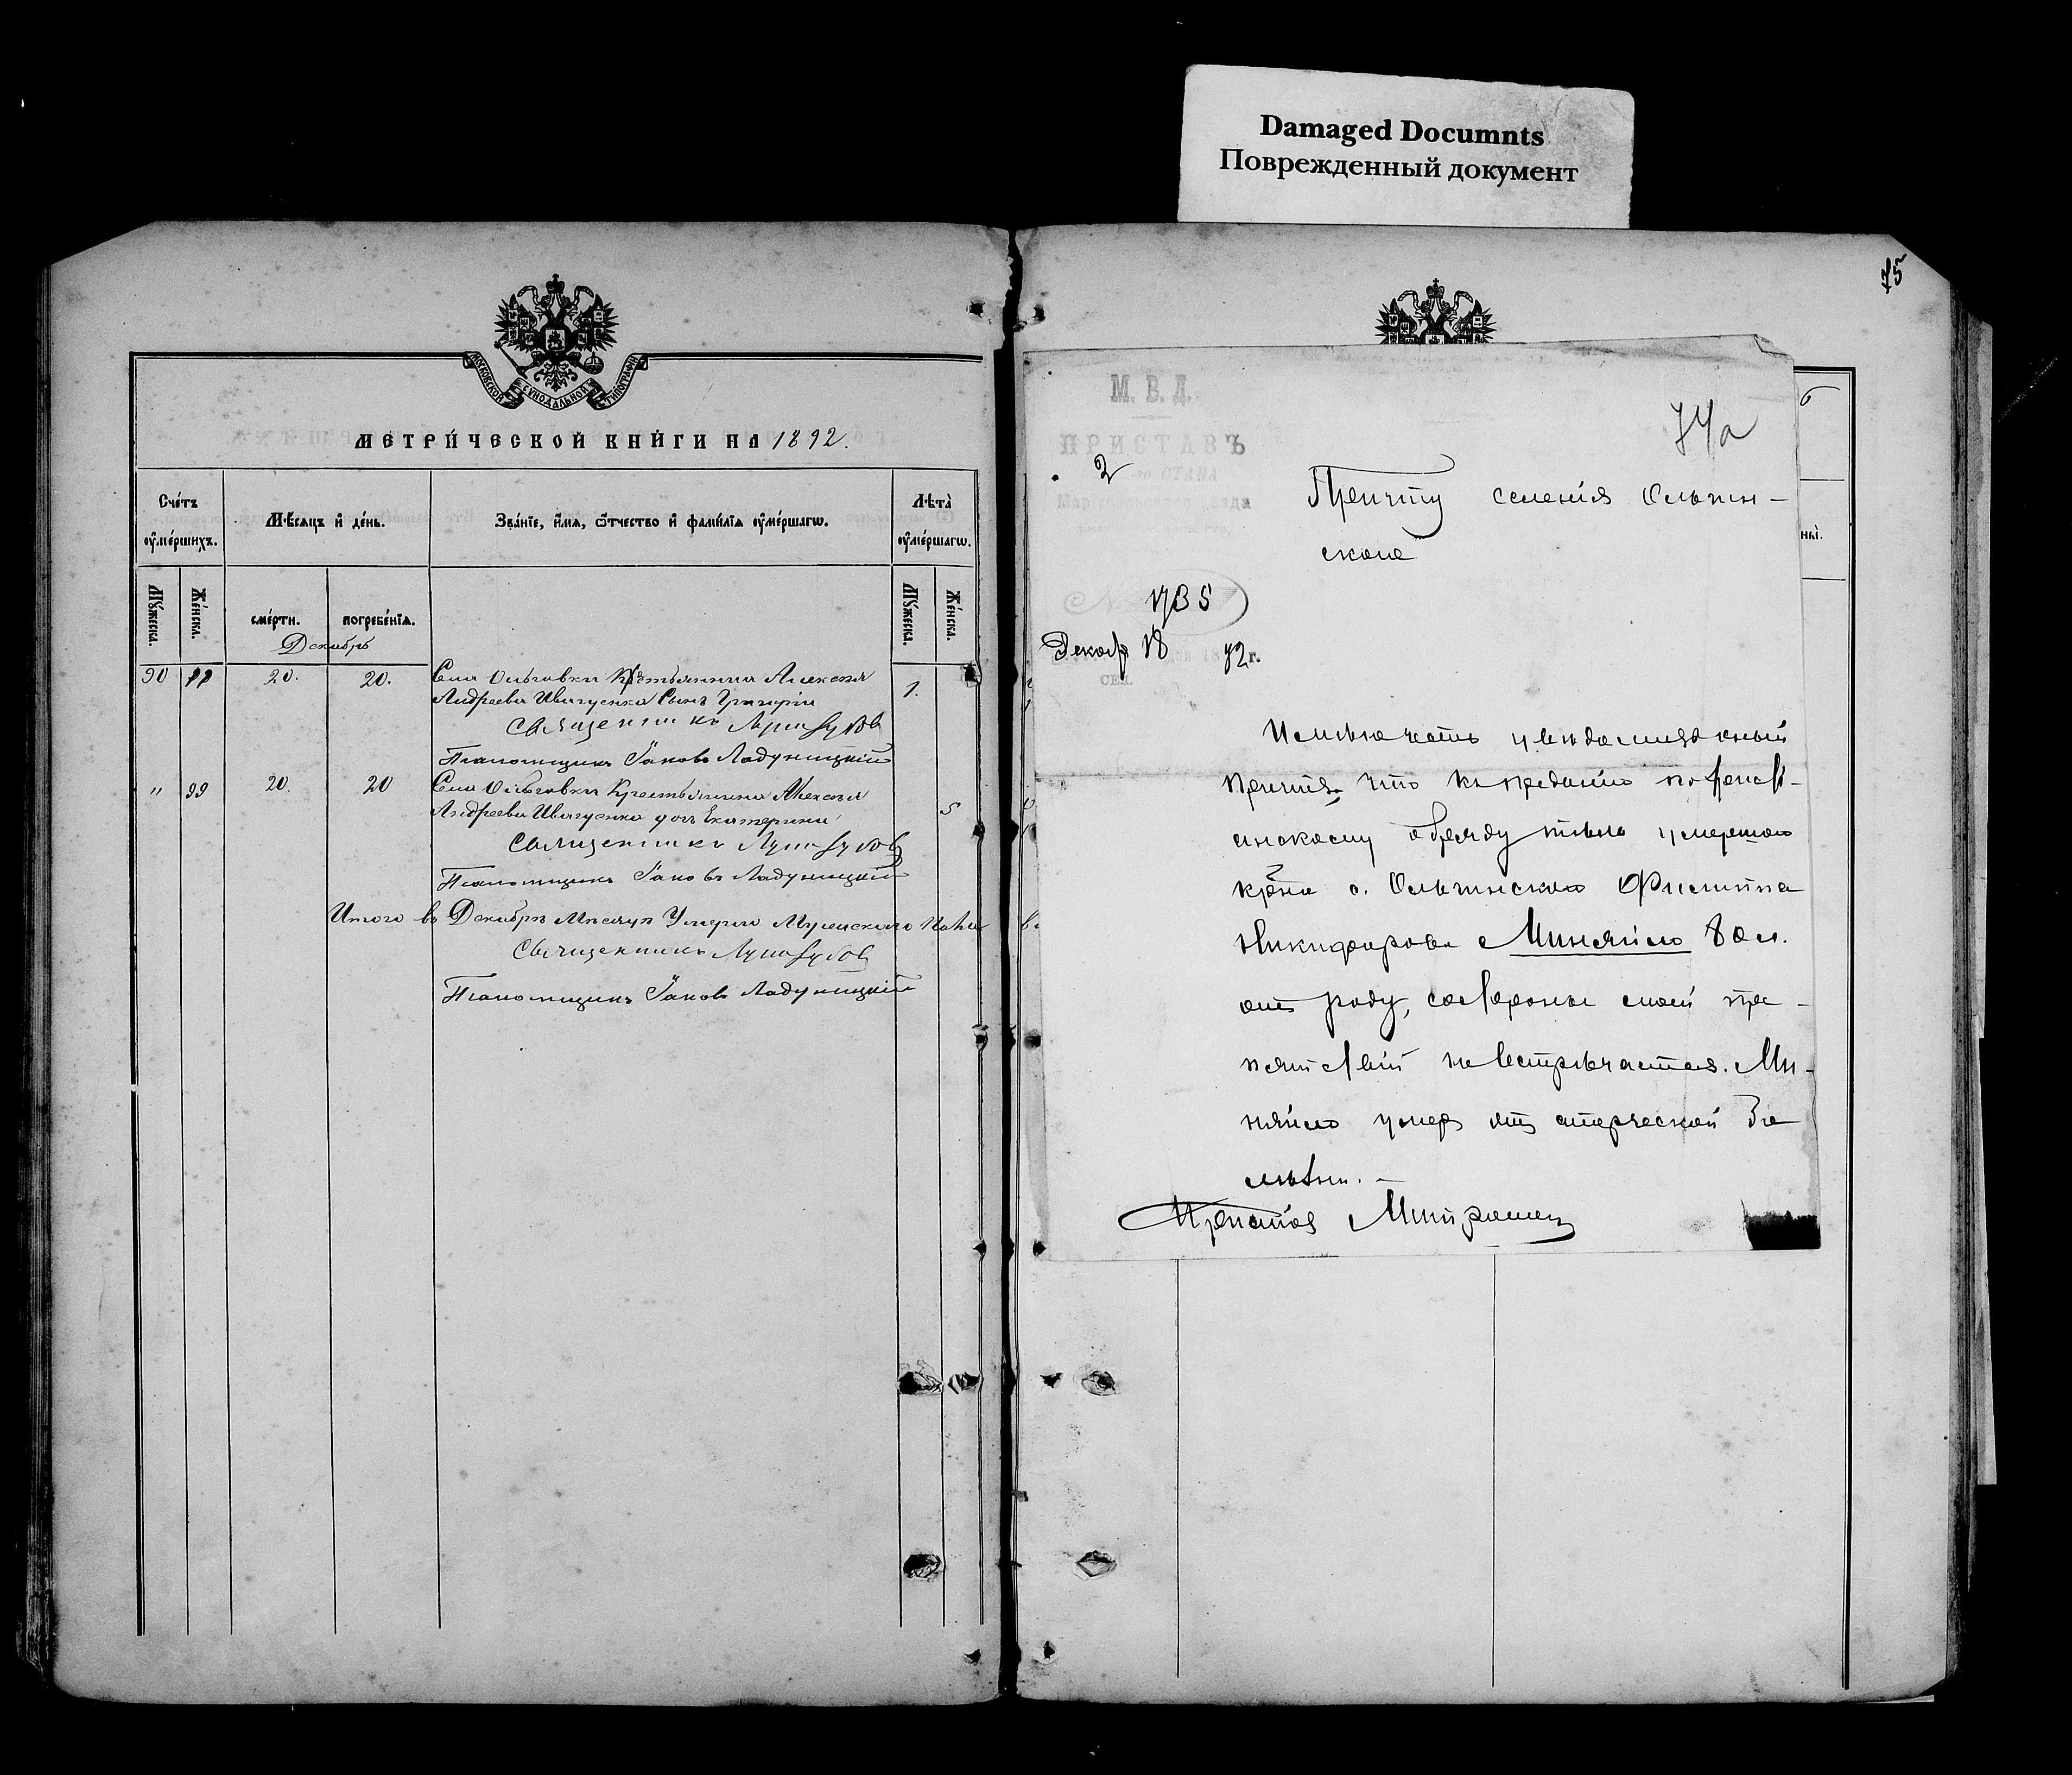 Damaged Documnts
Поврежденный документ
МОСКОВСКОЙ СѴНОДАЛЬНОЙ ТИПОГРАФІИ
МЕТРИ́ЧЕСКОЙ КНИ́ГИ НА 1892.
Сче́тъ
ѹ҆ме́ршихъ.
Мѣ́сяцъ и҆ де́нь.
Зва́нїе, и҆́мя, ѻ҆́тчество и҆ фами́лїя ѹ҆ме́ршагѡ.
Лѣта̀
ѹ҆ме́ршагѡ.
Мꙋ́жеска.
Же́нска.
сме́рти.
погребе́нїя.
Мꙋ́жеска.
Же́нска.
Декабрь
90
20.
20.
Села Ольговки Крестьянина Алексея
Андреева Иващенка Сынъ Григорій
1.
Священникъ
Псаломщикъ Іаковъ Ладухницкій
"
99
20.
20
Села Ольговки Крестьянина Алексея
Андреева Иващенка дочь Екатерина
5
Священникъ
Псаломщикъ Іаковъ Ладухницкій
Итого въ Декабрѣ Мѣсяцѣ Умерло Мужескаго Пола
Священникъ
Псаломщикъ Іаковъ Ладухницкій
75
74а
М. В. Д.
ПРИСТАВЪ
2 -го СТАНА
Маріупольскаго уѣзда
№ 1735
Декабр 18 92 г.
СЕЛ.
Причту селенія Ольгин-
скаго
Имѣю честь увѣдомить
причтъ, что къ преданію по христі-
анскому обряду тѣла умершаго
кр-на с. Ольгинскаго Филиппа
Никифорова Миняйло 80 л.
отъ роду, со стороны моей пре-
пятствій не встрѣчается. Ми-
няйло умеръ отъ старческой
Приставъ
ны̀.